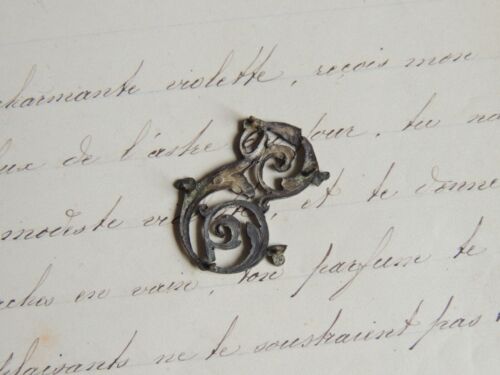 charmante violette, reçois mon
ux de l'astre jour, tu na
modeste et te donne
en vain, ton parfum te
plaisants ne te soustraient pas